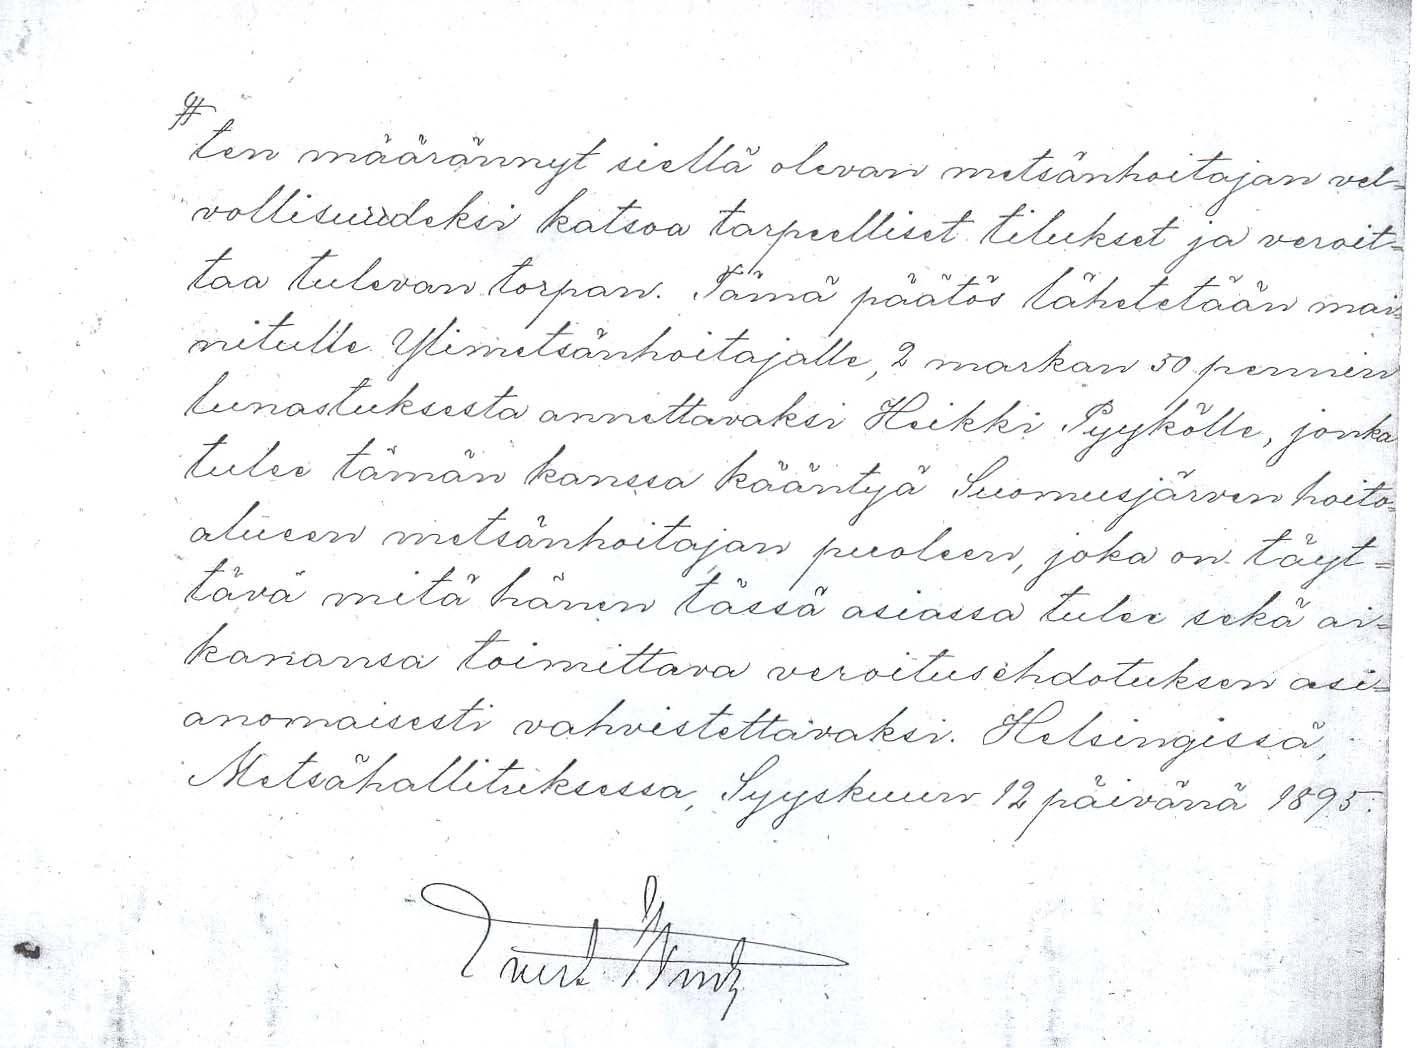 ten määrännyt siellä olevan metsänhoitajan vel=
vollisuudeksi katsoa tarpeelliset tilukset ja veroit=
taa tulevan torpan. Tämä päätös lähetetään mai=
nitulle Ylimetsänhoitajalle, 2 markan 50 pennin
lunastuksesta annettavaksi Heikki Pyykölle, jonka
tulee tämän kanssa kääntyä Suomusjärven hoito=
alueen metsänhoitajan puoleen, joka on täyt=
tävä mitä hänen tässä asiassa tulee sekä ai=
kanansa toimittava veroitusehdotuksen asi=
anomaisesti vahvistettavaksi. Helsingissä,
Metsähallituksessa, Syyskuun 12 päivänä 1895.